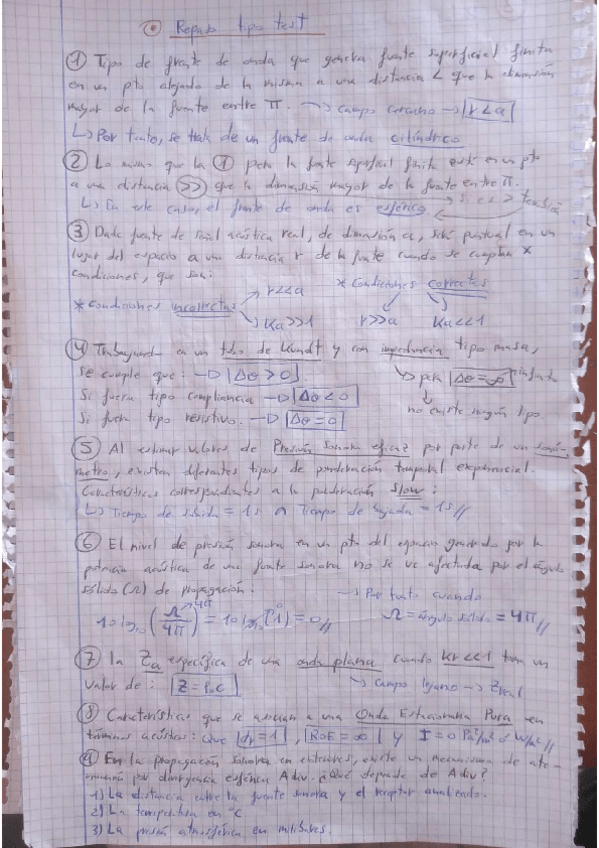 Repaso tipo test
① Tipo de frente de onda que genera fuente superficial finita
en un pto alejado de la misma a una distancia < que la dimensión
mayor de la fuente entre π. → campo cercano → r<a
↳ Por tanto, se trata de un frente de onda cilíndrico
② Lo mismo que la ① pero la fuente superficial finita está en un pto
a una distancia >> que la dimensión mayor de la fuente entre π.
↳ En este caso, el frente de onda es esférico si es >
③ Dada fuente de señal acústica real, de dimensión a, será puntual en un
lugar del espacio a una distancia r de la fuente cuando se cumplan *
condiciones, que son:
* Condiciones incorrectas r<<a Ka>>1 * Condiciones correctas r>>a Ka<<1
④ Trabajando en un tubo de Kundt y con impedancia tipo masa,
se cumple que: → Δθ > 0 → pero Δθ = ∞ infinito
Si fuera tipo compliancia → Δθ < 0 no existe ningún tipo.
Si fuera tipo resistivo. → Δθ = 0
⑤ Al estimar valores de Presión sonora eficaz por parte de un sonó-
metro, existen diferentes tipos de ponderación temporal exponencial.
Características correspondientes a la ponderación Slow:
↳ Tiempo de subida = 1s ∧ Tiempo de bajada = 1s //
⑥ El nivel de presión sonora en un pto del espacio generado por la
potencia acústica de una fuente sonora no se ve afectada por el ángulo
sólido (Ω) de propagación: → Por tanto cuando
10 log₁₀ (Ω/4π) = 10 log₁₀ (1) = 0 // Ω = ángulo sólido = 4π //
⑦ La Za específica de una onda plana cuando kr<<1 tiene un
valor de: Z = ρ₀c → campo lejano → Z real
⑧ Características que se asocian a una Onda Estacionaria Pura en
términos acústicos: Que |dr|=1, ROE = ∞ y I = 0
⑨ En la propagación sonora en exteriores, existe un mecanismo de ate-
nuación por divergencia esférica Adiv. ¿Qué depende de Adiv?
1) La distancia entre la fuente sonora y el receptor analizado.
2) La temperatura en °C
3) La presión atmosférica en milibares.